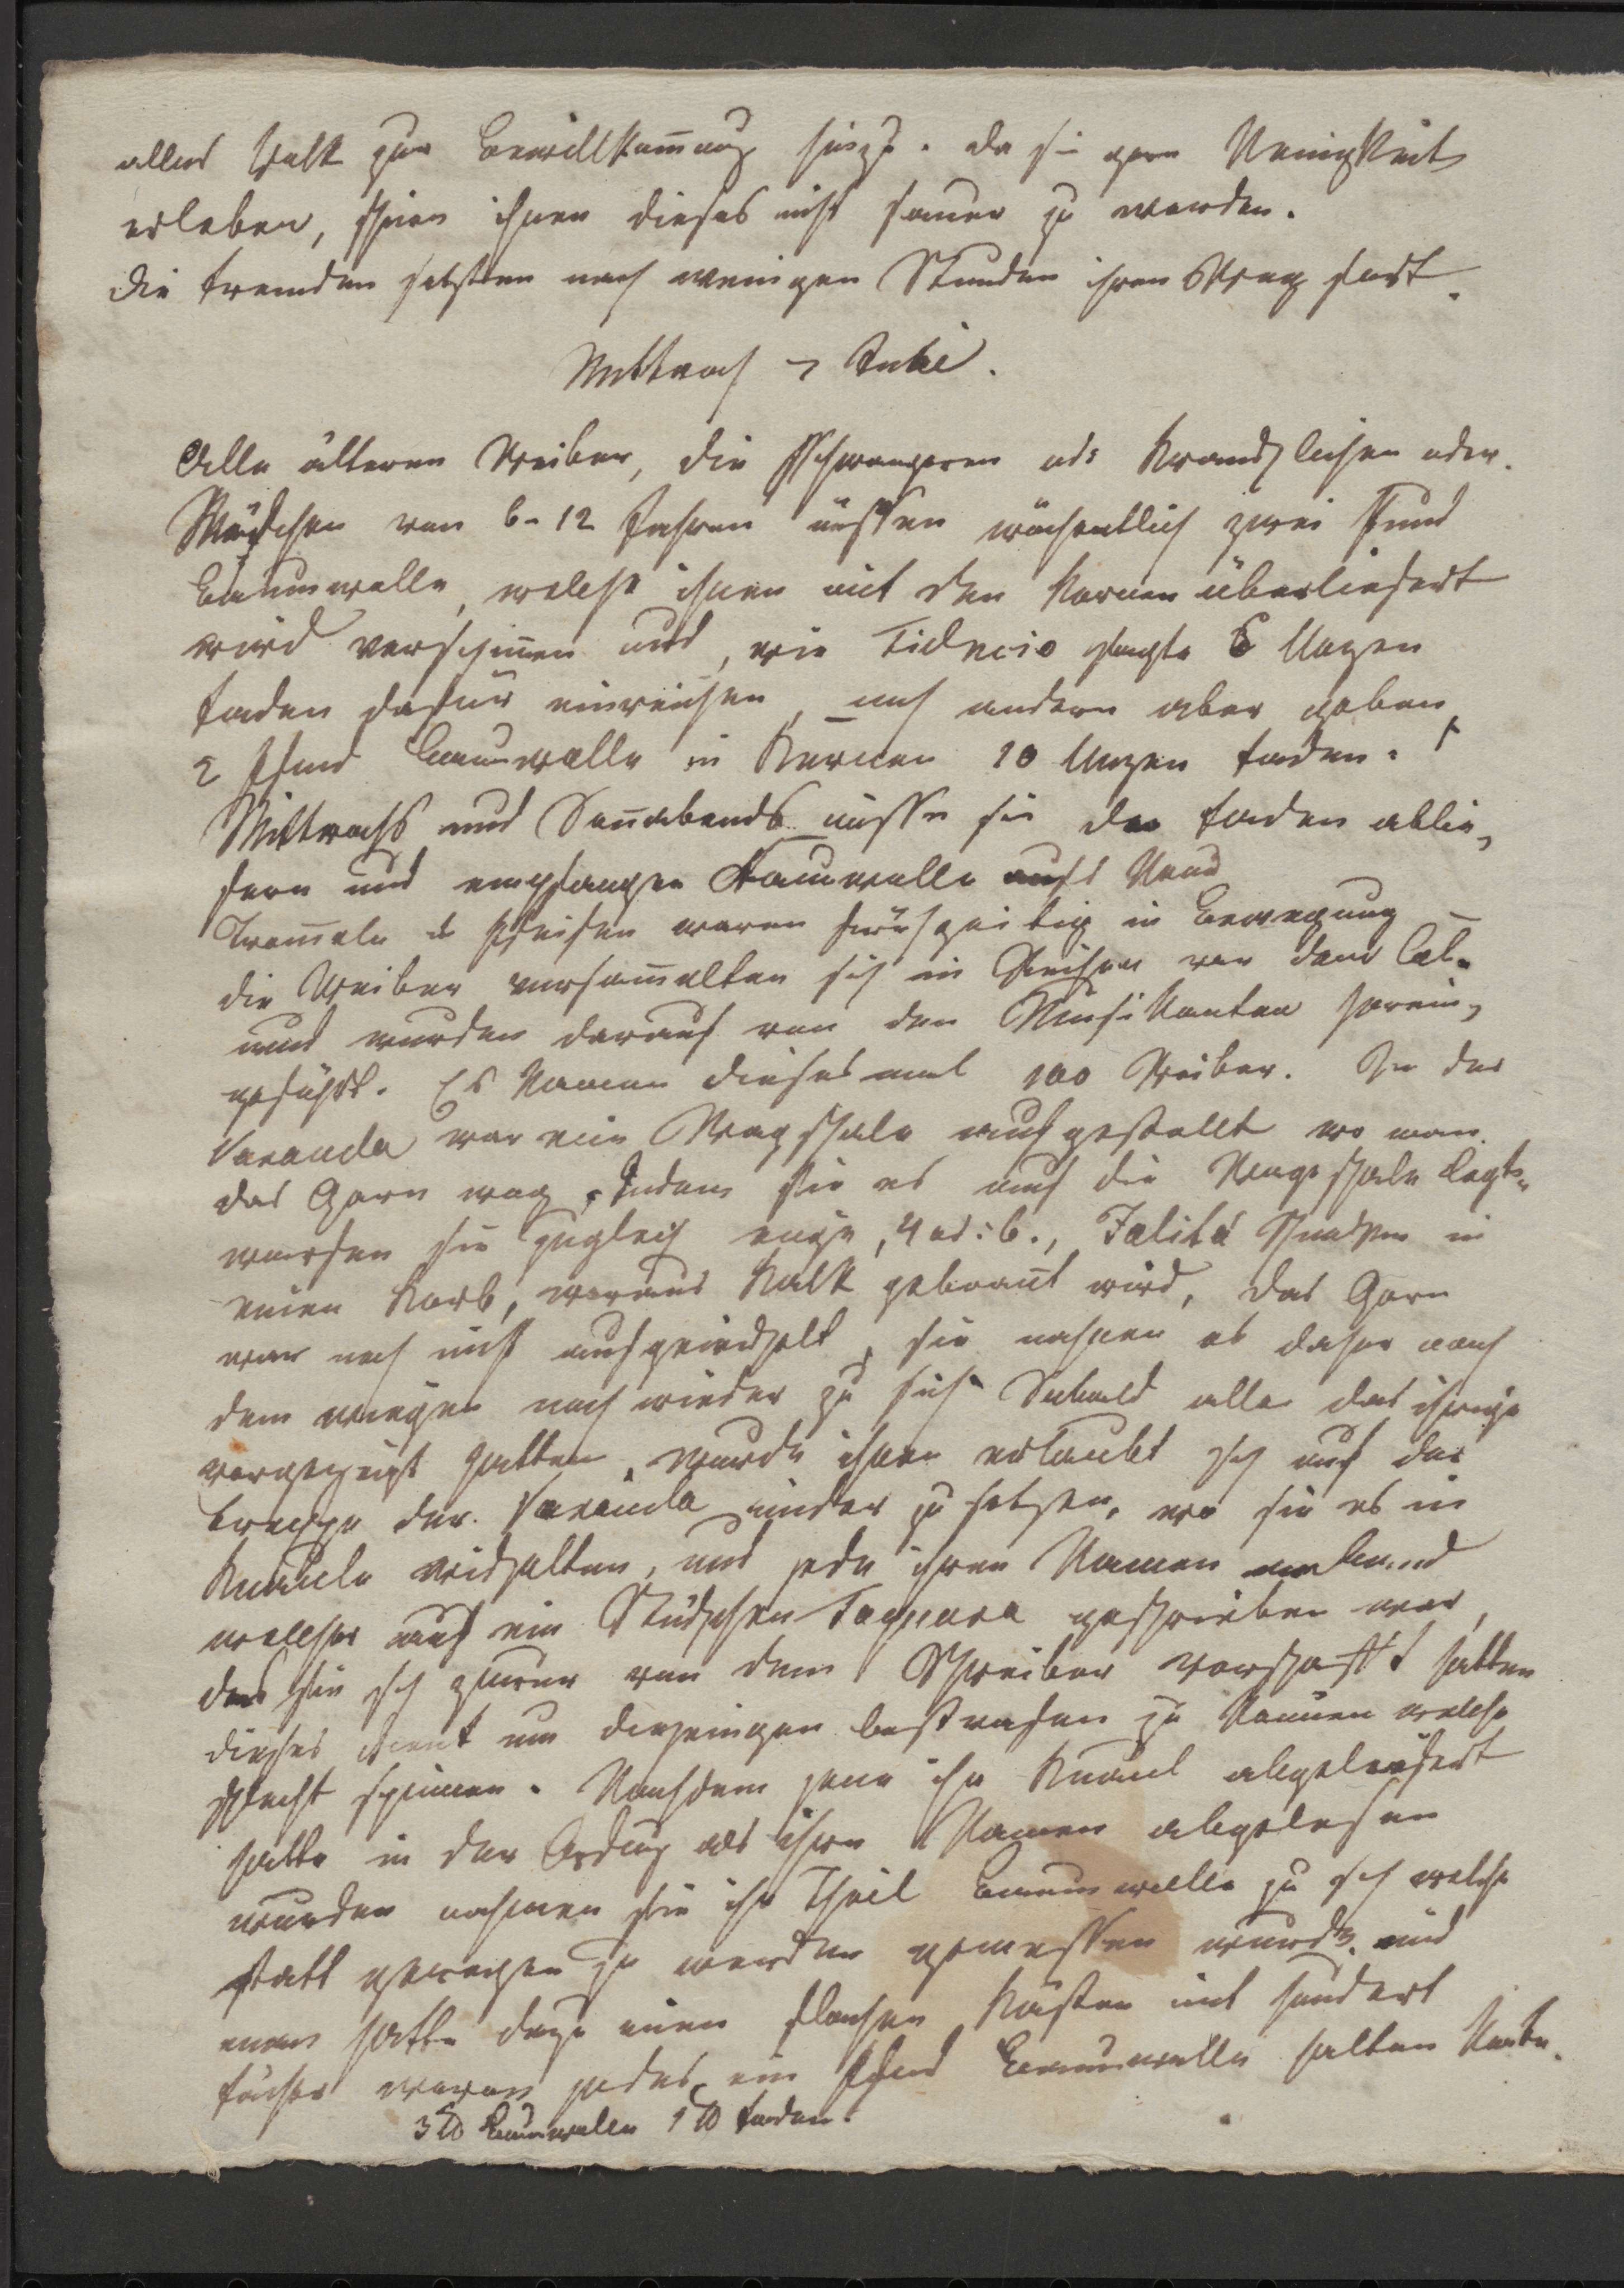 alles Volk zur Bewillkom̄nung hinzu. da sie gern Neuigkeit
erleben, schien ihnen dieses nicht sauer zu werden.
die Fremden setzten nach wenigen Stunden ihren Weg fort.
Mittwoch 7 Juli.
Alle älteren Weiber, die Schwangeren od: Kränklichen oder
Mädchen von 6-12 Jahren müssen wöchentlich zwei Pfund
Baumwolle, welche ihnen mit den Kernen überliefert
wird verspinnen und, wie Fidencio sagte 6 Unzen
Faden dafür einreichen, nach andern aber geben
2 Pfund Baumwolle in Kernen 10 Unzen Faden.
Mittwochs und Sonnabends müssen sie den Faden ablie-
fern und empfangen Baumwolle aufs Neue
Trom̄eln & Pfeifen waren frühzeitig in Bewegung –
die Weiber versam̄elten sich in Reihen vor dem Cab.
und wurden darauf von den Musikanten herein-
geführt. Es kamen diesesmal 100 Weiber. In der
Varanda war eine Wagschale aufgestellt wo man
das Garn wog, Indem sie es auf die Wagschale legten
warfen sie zugleich einige, 4 od: 6., Itálitá Stücken in
einen Korb, woraus Kalk gebrant wird, das Garn
war noch nicht aufgewickelt, sie nahmen es daher nach
dem wiegen noch wieder zu sich. Sobald alle das ihrige
vorgezeigt hatten, wurde ihnen erlaubt sich auf der
Treppe der Varanda nieder zu setzen, wo sie es in
Knäule wickelten, und jede ihren Namen einband
welcher auf ein Stückchen Taquara geschrieben war,
das sie sich zuvor von dem Schreiber verschafft hatten
dieses dient um diejenigen bestrafen zu können welche
schlecht spinnen. Nachdem jene ihr Knäuel abgeliefert
hatte in der Ordnung als ihre Namen abgelesen
wurden nahmen sie ihr Theil Baumwolle zu sich welche
statt gewogen zu werden gemessen wurde, und
man hatte dazu einen flachen Kasten mit hundert
Fächer wovon jedes ein Pfund Baumwolle halten konte.
3 ℔ Baumwolle 1 ℔ Faden.